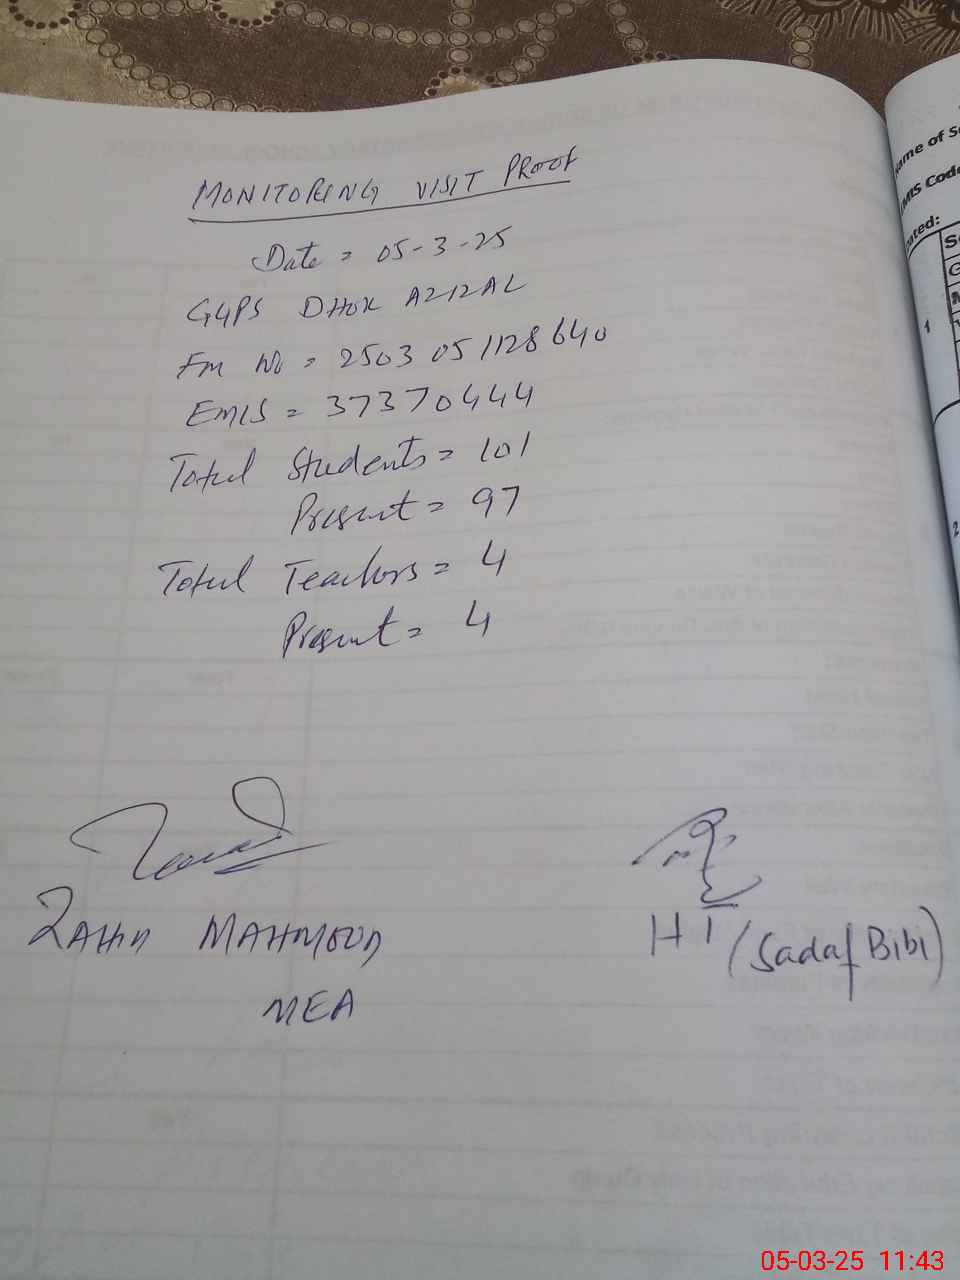 MONITORING VISIT PROOF
Date = 05-3-25
GGPS DHOK AZIZAL
Fm No = 2503 051128640
EMIS = 37370444
Total Students = 101
Present = 97
Total Teachers = 4
Present = 4
MAHMOOD
MEA
HT (Sadaf Bibi)
ame of Sc
MIS Code
ated:
1
2
05-03-25 11:43